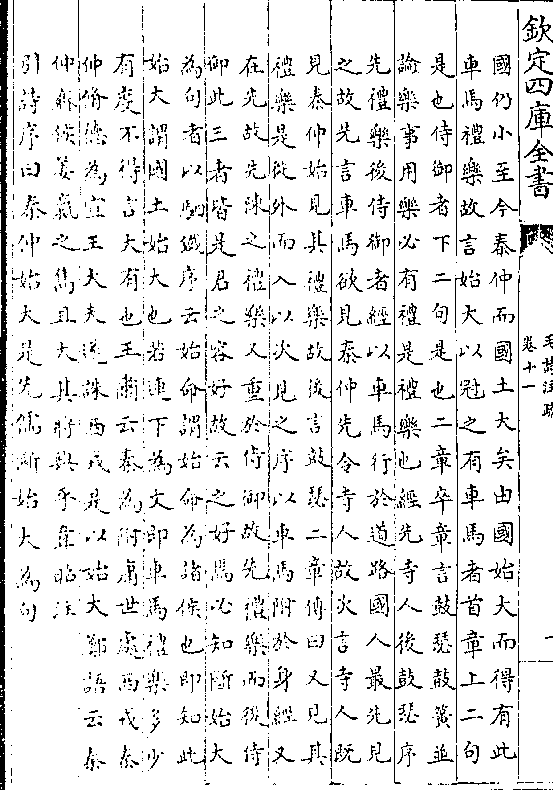 欽定四庫全書
毛詩注疏
卷十一
一
國仍小至今秦仲而國土大矣由國始大而得有此
車馬禮樂故言始大以冠之有車馬者首章上二句
是也侍御者下二句是也二章卒章言鼓瑟鼓簧並
論樂事用樂必有禮是禮樂也經先寺人後鼓瑟序
先禮樂後侍御者經以車馬行於道路國人最先見
之故先言車馬欲見秦仲先令寺人故次言寺人既
見秦仲始見其禮樂故後言鼓瑟二章傳曰又見其
禮樂是從外而入以次見之序以車馬附於身經又
在先故先陳之禮樂又重於侍御故先禮樂而後侍
御此三者皆是君之容好故云之好焉必知斷始大
為句者以駟鐵序云始命謂始命為諸侯也即知此
始大謂國土始大也若連下為文即車馬禮樂多少
有度不得言大有也王肅云秦為附庸世處西戎秦
仲脩德為宣王大夫遂誅西戎是以始大鄭語云秦
仲齊侯姜嬴之雋且大其將興乎韋昭注
引詩序曰秦仲始大是先儒斷始大為句